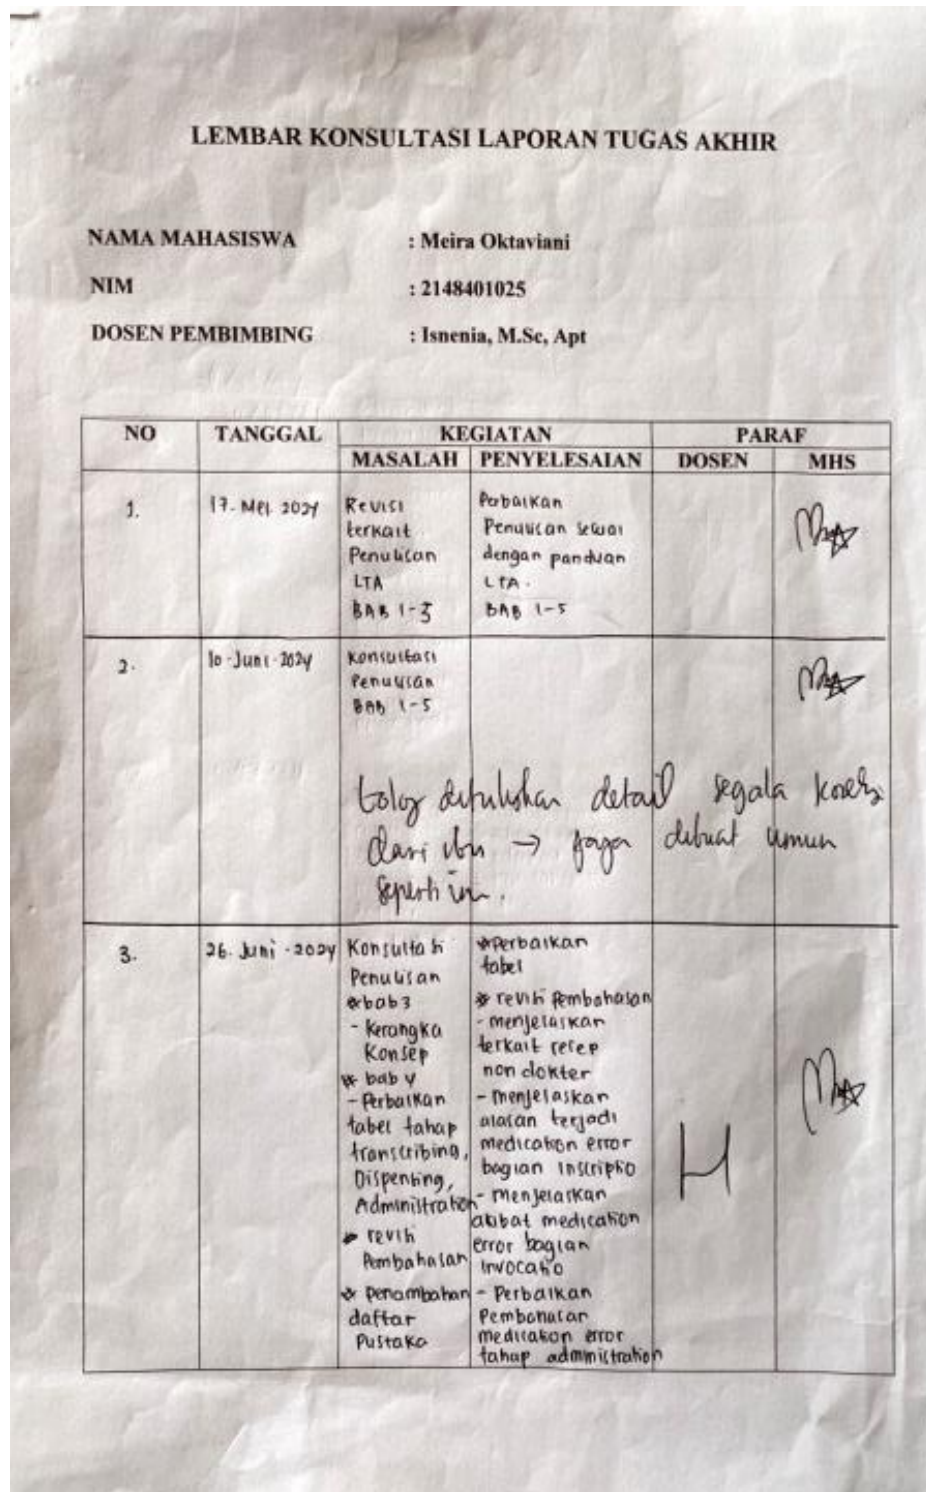 LEMBAR KONSULTASI LAPORAN TUGAS AKHIR
NAMA MAHASISWA : Meira Oktaviani
NIM : 2148401025
DOSEN PEMBIMBING : Isnenia, M.Sc, Apt
NO TANGGAL KEGIATAN PARAF
MASALAH PENYELESAIAN DOSEN MHS
1. 17. Mei 2024
Revisi
terkait
Penulisan
LTA
BAB 1-5
Perbaikan
Penulisan sesuai
dengan panduan
LTA.
BAB 1-5
2. 10-Juni-2024
Konsultasi
Penulisan
BAB 1-5
tolog dituliskan detail segala
dari ibu → dibuat umum
seperti ini.
3. 26. Juni - 2024
Konsultasi
Penulisan
* bab 3
- Kerangka
Konsep
* bab 4
- Perbaikan
tabel tahap
transcribing,
Dispensing,
Administration
* revisi
Pembahasan
* Penambahan
daftar
Pustaka
* Perbaikan
tabel
* revisi Pembahasan
- menjelaskan
terkait resep
non dokter
- menjelaskan
alasan terjadi
medication error
bagian Inscriptio
- menjelaskan
akibat medication
error bagian
Invocatio
- Perbaikan
Pembahasan
medication error
tahap administration